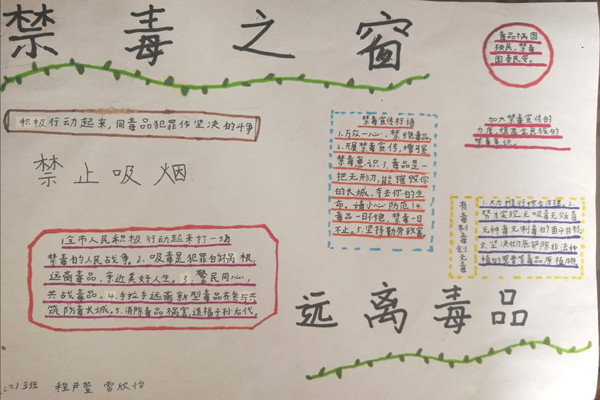 禁毒之窗
毒品祸国
殃民,禁毒
国泰民安。
积极行动起来,同毒品犯罪作坚决的斗争
禁止吸烟
禁毒宣传标语
1.万众一心,禁绝毒品。
2.开展禁毒宣传,增强
禁毒意识.3.毒品是一
把无形刀,能摧毁你
的长城,夺去你的生
命,请小心防范.4.
毒品一日不绝,禁毒一日
不止。5.坚持勤劳致富
加大禁毒宣传的
力度,提高全民族的
禁毒意识。
1.全市人民积极行动起来打一场
禁毒的人民战争。2.吸毒是犯罪的祸根,
远离毒品,亲近美好人生。3.警民同心,
共战毒品。4.手拉手远离新型毒品齐参与共
筑防毒长城。5.消除毒品祸害,造福子孙后代。
有毒
创无毒
禁毒实现无吸毒无贩毒
无种毒无制毒的奋斗目标
3.坚决切底铲除非法种
植的罂粟等毒品原植物
远离毒品
二1班 程尹萱 雷欣怡